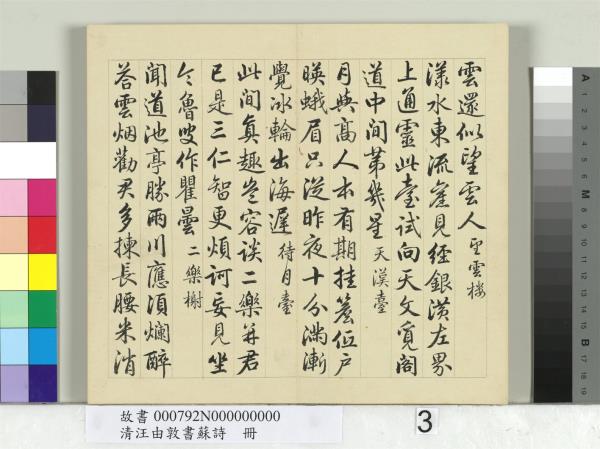 雲還似望雲人 望雲樓
漾水東流舊見經銀潢左界
上通靈此臺試向天文覓閣
道中間第幾星 天漢臺
月與高人本有期挂簷低戶
暎蛾眉只從昨夜十分滿漸
覺冰輪出海遲 待月臺
此間真趣豈容談二樂并君
已是三仁智更煩訶妄見坐
令魯叟作瞿曇 二樂榭
聞道池亭勝兩川應須爛醉
荅雲烟勸君多揀長腰米消
故書 000792N000000000
清汪由敦書蘇詩 冊
3
A 1 2 3 4 5 6 7 M 8 9 10 11 12 13 14 15 B 17 18 19